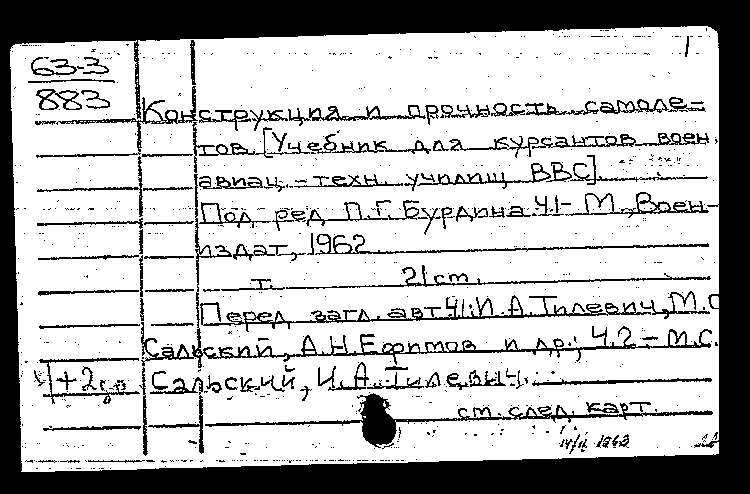 1
63-3
883
Конструкция и прочность самоле-
тов. [Учебник для курсантов воен.
авиац.-техн. училищ ВВС].
Под ред П.Г. Бурдина Ч.1- М., Воен-
издат, 1962.
т. 21 cm.
Перед загл. авт Ч1: И.А. Тилевич, М.С
Сальский, А.Н. Ефимов и др.; Ч.2 - М.С.
+2 Сальский, И.А. Тилевич.
см. след. карт.
1962